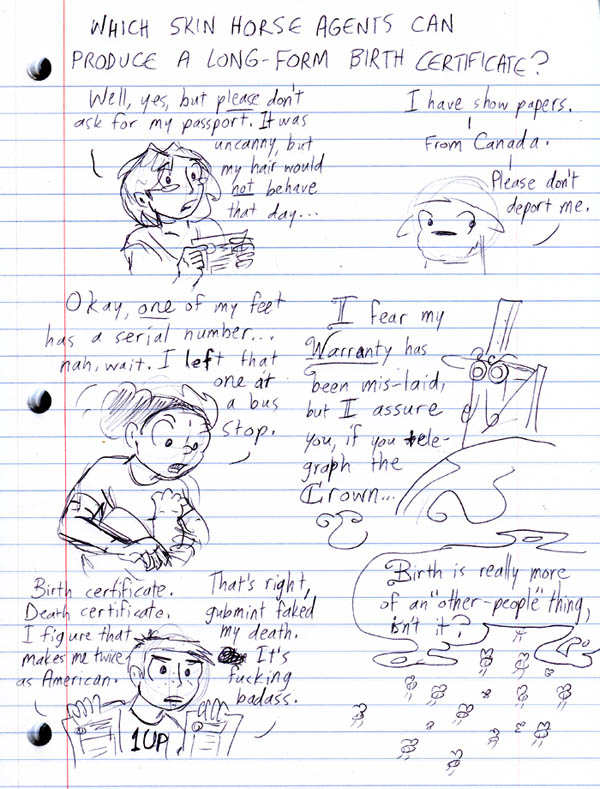 WHICH SKIN HORSE AGENTS CAN
PRODUCE A LONG-FORM BIRTH CERTIFICATE?
Well, yes, but please don't
ask for my passport. It was
uncanny, but
my hair would
not behave
that day...
I have show papers.
From Canada.
Please don't
deport me.
Okay, one of my feet
has a serial number...
nah, wait. I left that
one at
a bus
stop.
I fear my
Warranty has
been mis-laid,
but I assure
you, if you tele-
graph the
Crown...
Birth certificate.
Death certificate.
I figure that
makes me twice
as American.
That's right,
gubmint faked
my death.
It's
fucking
badass.
1UP
Birth is really more
of an "other-people" thing,
isn't it?